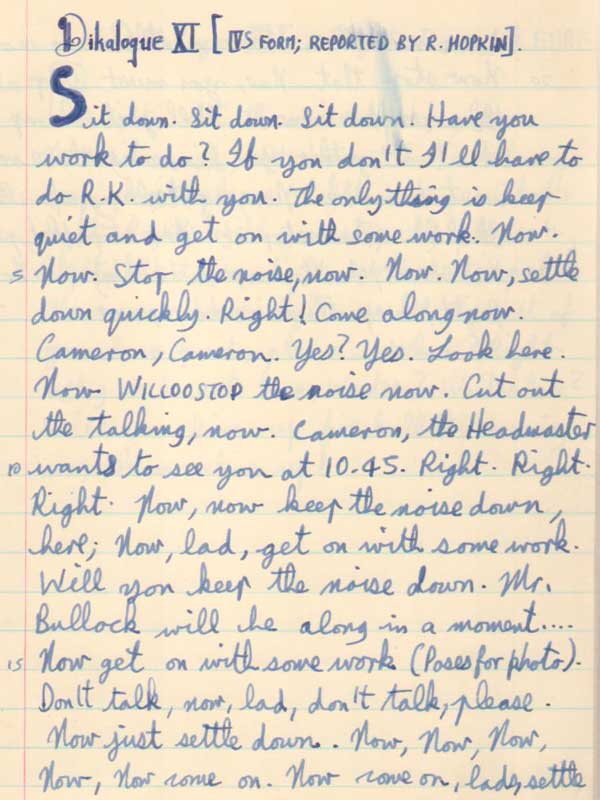 Dikalogue XI [VS FORM; REPORTED BY R. HOPKIN].
Sit down. Sit down. Sit down. Have you
work to do? If you don't I'll have to
do R.K. with you. The only thing is keep
quiet and get on with some work. Now.
5 Now. Stop the noise, now. Now. Now, settle
down quickly. Right! Come along now.
Cameron, Cameron. Yes? Yes. Look here.
Now WILLOOSTOP the noise now. Cut out
the talking, now. Cameron, the Headmaster
10 wants to see you at 10.45. Right. Right.
Right. Now, now keep the noise down,
here; Now, lad, get on with some work.
Will you keep the noise down. Mr.
Bullock will be along in a moment....
15 Now get on with some work (Poses for photo).
Don't talk, now, lad, don't talk, please.
Now just settle down. Now, Now, Now,
Now, Now come on. Now come on, lads, settle